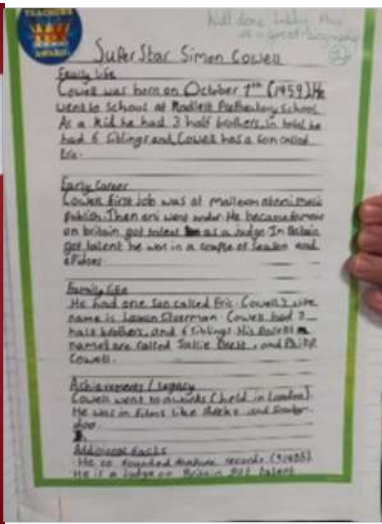 TEACHERS
AWARD
Well done
this
is a great biography
SuperStar Simon Cowell
Early Life
Cowell was born on October 7th (1959). He
went to school at Radlett Prepretory School.
As a kid he had 3 half brothers, in total he
had 6 Siblings and Cowell has a son called
Eric.
Early Career
Cowell first job was at music
publish. Then emi went under. He became famous
on britain got talent as a Judge. In Britain
got talent he was in a couple of Season and
Family life
He had one Son called Eric. Cowell's wife
name is Lauren Silverman Cowell had 3
half brothers, and 6 siblings. His
names are called Julie Brett, and
Cowell.
Achievements / Legacy
Cowell went to awards (held in London).
He was in films like and Scooby
doo.
Additional Facts
He co founded records
He is a Judge on Britain got talent